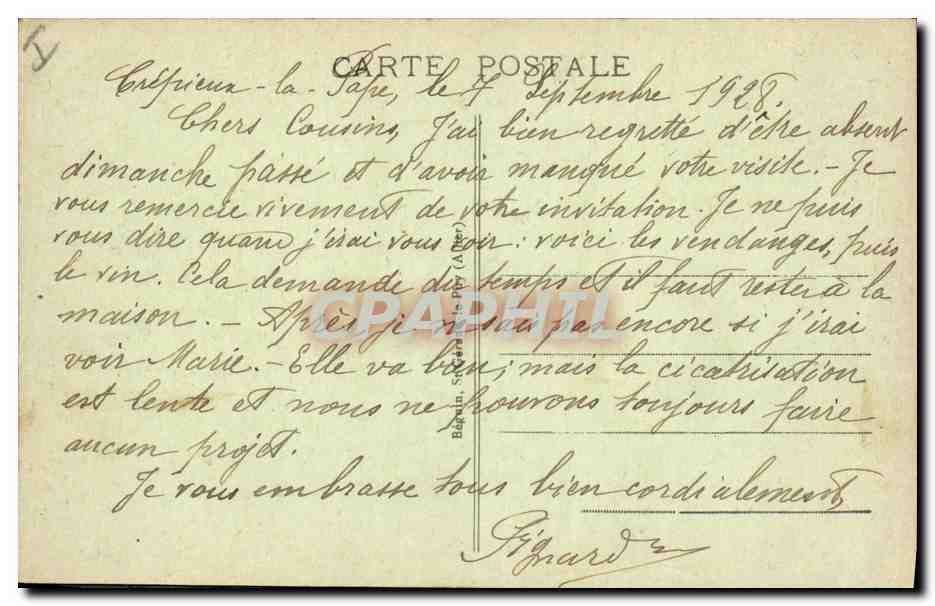 CARTE POSTALE
Crépieux-la-Pape, le 7 Septembre 1928.
Chers Cousins, J'ai bien regretté d'être absent
dimanche passé et d'avoir manqué votre visite. - Je
vous remercie vivement de votre invitation. Je ne puis
vous dire quand j'irai vous voir : voici les vendanges, puis
le vin. Cela demande du temps et il faut rester à la
maison. - Après, je ne sais pas encore si j'irai
voir Marie. - Elle va bien; mais la cicatrisation
est lente et nous ne pouvons toujours faire
aucun projet.
Je vous embrasse tous bien cordialement,
Pignard
Béguin, St-Gérand-le-Puy (Allier)
CPAPHIL